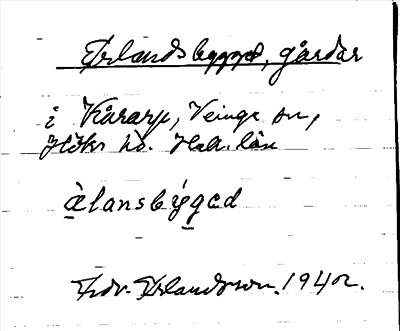 Erlandsbygget, gårdar
i Kårarp, Veinge sn,
Höks hd. Hall. län
ä̀lansbýgəd
Edv. Erlandsson. 1942.